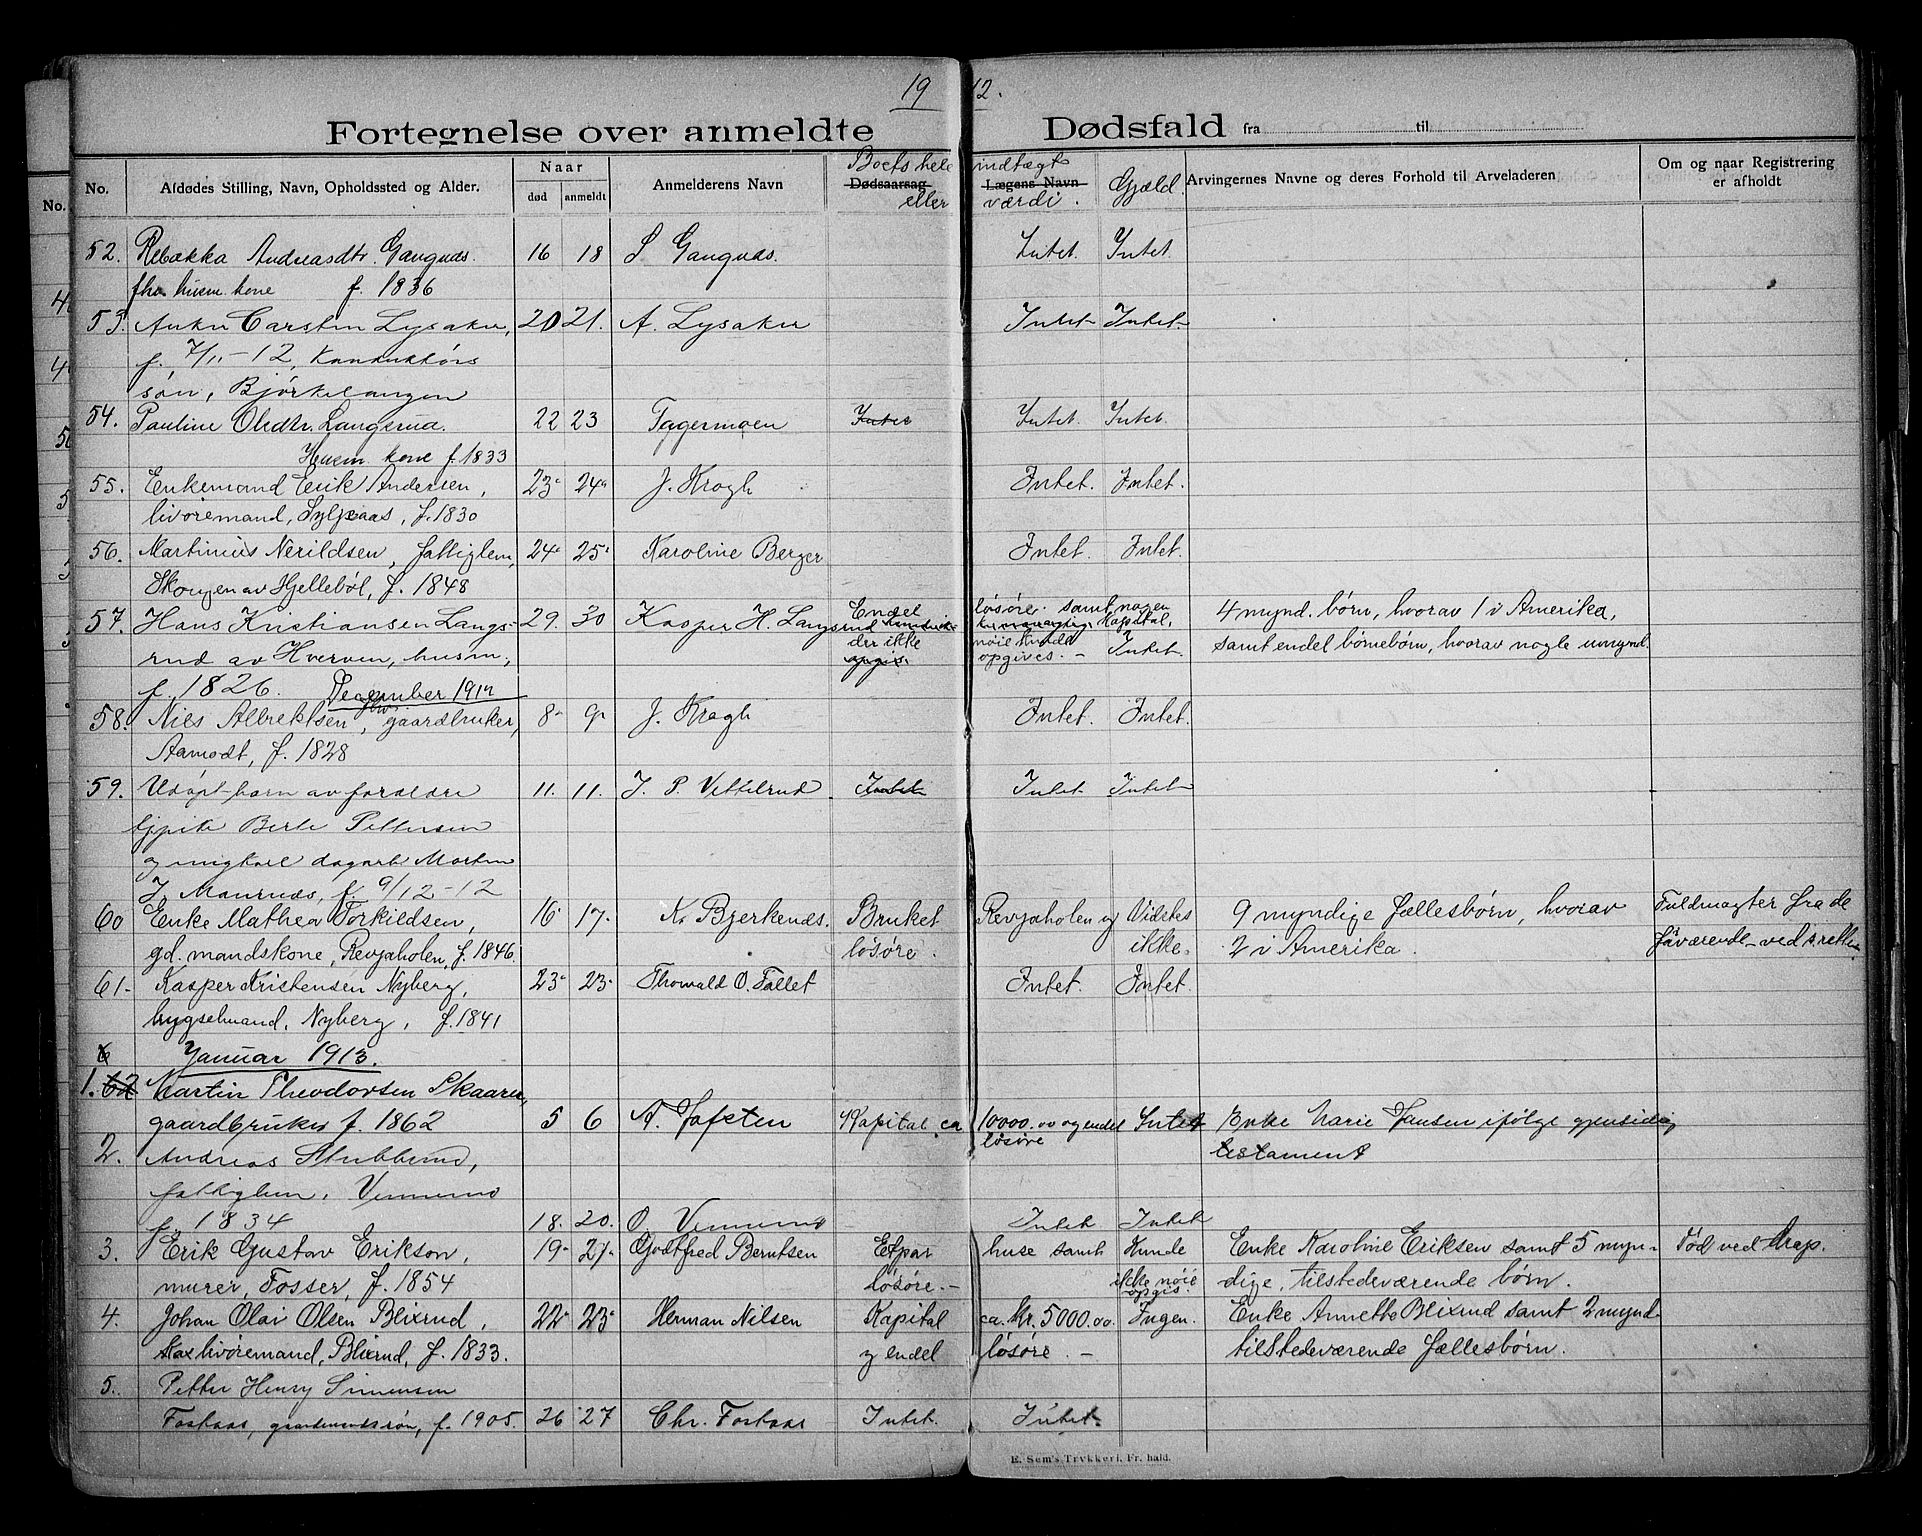 1912.
Fortegnelse over anmeldte Dødsfald fra til
No. Afdødes Stilling, Navn, Opholdssted og Alder. Naar død anmeldt Anmelderens Navn Dødsaarsag Boets hele eller Lægens Navn indtægt værdi. Gjæld Arvingernes Navne og deres Forhold til Arveladeren Om og naar Registrering er afholdt
52. Rebækka Andreasdtr. Gangnæs. 16 18 S Gangnæs. Intet. Intet.
fhv. husm. kone f. 1836
53. Anker Carsten Lysaker, 20 21. A. Lysaker Intet Intet
f. 7/11-12, Konduktørs
søn, Bjørkelangen
54. Pauline Olsdtr. Langsrud. 22 23 Toggermoen Intet Intet. Intet.
Husm. kone f. 1833
55. Enkemand Erik Andersen, 23 24 J. Krogh Intet. Intet.
livøremand, , f. 1830
56. Martinius Nerildsen, fattiglem, 24 25 Karoline Berger Intet. Intet.
Skougen av Hjellebøl, f. 1848
57. Hans Kristiansen Langs- 29. 30 Kasper H. Langsrud Endel løsøre. samt nogen Kapital, 4 mynd. børn, hvorav 1 i Amerika,
rud av Hverven, husm., der ikke nøie kunde opgives. - Intet. samt endel børnebørn, hvorav nogle umynd.
f. 1826. December 1912
58. Niels Albrektsen, fhv. gaardbruker, 8 9 J. Krogh Intet. Intet.
Aamodt, f. 1828
59. Udøpt barn av forældre 11. 11. J. P. Vettilrud Intet Intet Intet
pike Berte Pettersen
og ungkarl dagarb. Morten
J. Maurnæs, f. 9/12-12
60 Enke Mathea Torkildsen, 16 17. N. Bjerkenæs. Bruket Revjaholen og Vidstes 9 myndige fællesbørn, hvorav Fuldmagter fra de
gd. mandskone, Revjaholen, f. 1846. løsøre. ikke. 2 i Amerika. fraværende ved s.retten
61. Kasper Kristensen Nyberg, 23 23 Thorvald O. Tollet Intet. Intet.
bygselmand, Nyberg, f. 1841
Januar 1913.
1. 62 Martin Theodorsen Skaarer,
gaardbruker f. 1862 5 6 A. Jafsten Kapital ca 10000.00 og endel løsøre Intet Enke Marie Jensen ifølge gjensidig
testament
2. Andreas Stubberud,
fattiglem, Vennemo
f. 1834 18. 20. O. Vennemo Intet Intet
3. Erik Gustav Erikson, 19 21 Godtfred Berntsen Etpar huse samt Kunde Enke Karoline Eriksen samt 5 myn- Død ved drap.
murer, Fosser, f. 1854 løsøre. - ikke nøie opgis. dige, tilstedeværende børn.
4. Johan Olai Olsen Blixrud, 22 23 Herman Nilsen Kapital ca. kr. 5000.00. Ingen. Enke Annette Blixrud samt 2 mynd.
livøremand, Blixrud, f. 1833. og endel løsøre. - tilstedeværende fællesbørn.
5. Petter Henry Simensen
Fostaas, gaardmandssøn, f. 1905. 26 27 Chr. Fostaas Intet. Intet.
E. Sem's Trykkeri, Fr. hald.